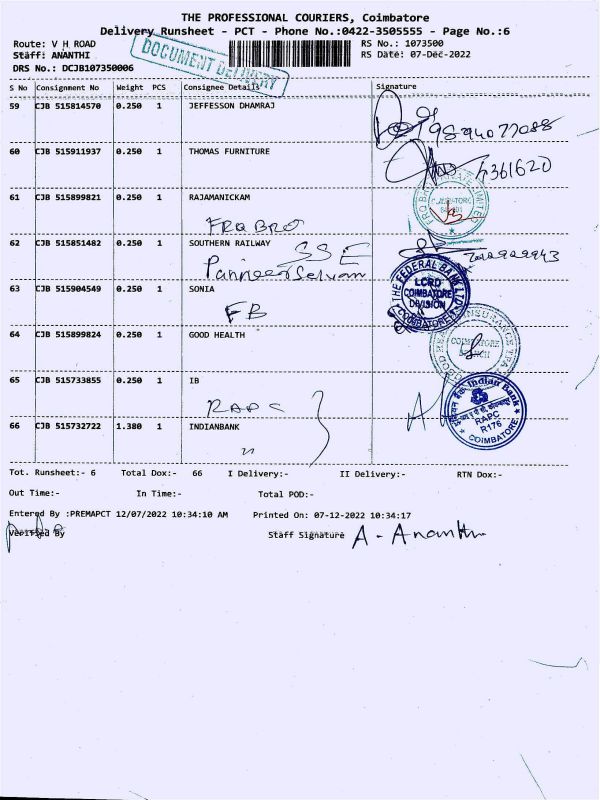 THE PROFESSIONAL COURIERS, Coimbatore
Delivery Runsheet - PCT - Phone No.:0422-3505555 - Page No.:6
Route: V H ROAD
RS No.: 1073500
Staff: ANANTHI
RS Date: 07-Dec-2022
DRS No.: DCJB107350006
DOCUMENT DELIVERY
S No Consignment No Weight PCS Consignee Details Signature
59 CJB 515814570 0.250 1 JEFFESSON DHAMRAJ
9894077088
60 CJB 515911937 0.250 1 THOMAS FURNITURE
4361620
61 CJB 515899821 0.250 1 RAJAMANICKAM
FRQ BRO
62 CJB 515851482 0.250 1 SOUTHERN RAILWAY
SSE
Panneer Selvam
63 CJB 515904549 0.250 1 SONIA
THE FEDERAL BANK LTD.
LCRD
COIMBATORE
DIVISION
COIMBATORE
FB
64 CJB 515899824 0.250 1 GOOD HEALTH
INSURANCE TPA
COIMBATORE
BRANCH
65 CJB 515733855 0.250 1 IB
RAPC
Indian Bank
RAPC
R176
COIMBATORE
66 CJB 515732722 1.380 1 INDIANBANK
Tot. Runsheet:- 6 Total Dox:- 66 I Delivery:- II Delivery:- RTN Dox:-
Out Time:- In Time:- Total POD:-
Entered By :PREMAPCT 12/07/2022 10:34:10 AM Printed On: 07-12-2022 10:34:17
Verified By Staff Signature A - Ananthi